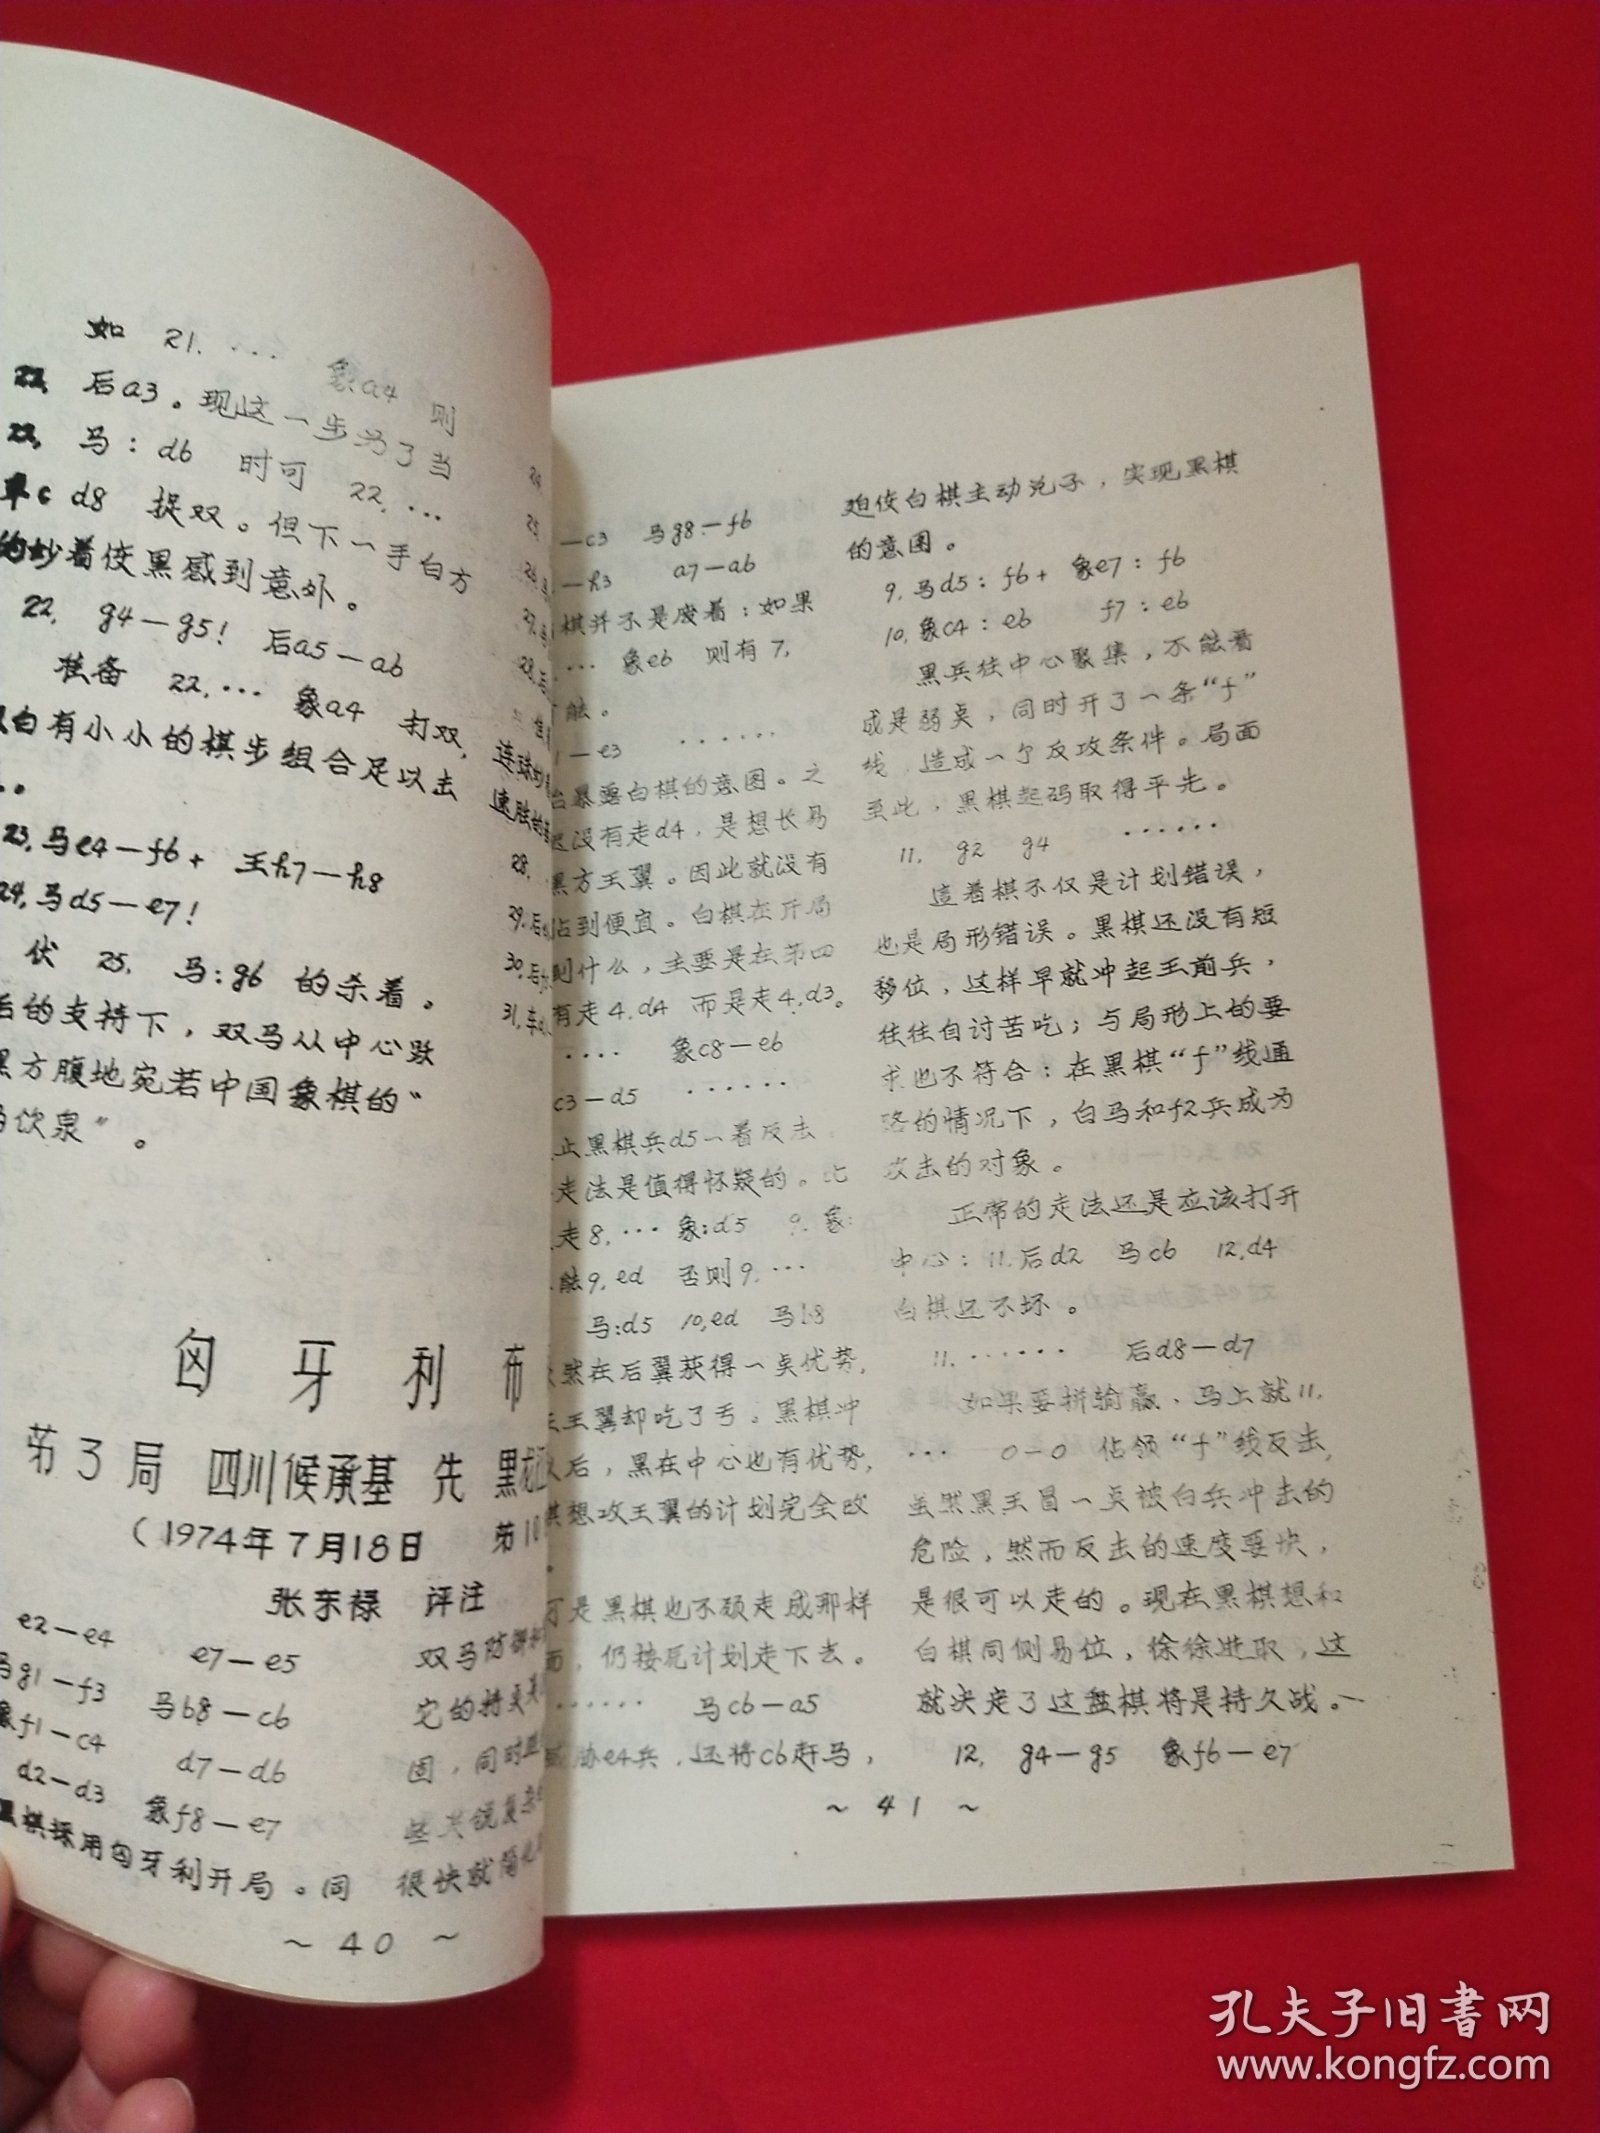 如 21. … 象a4 则
22. 后a3。现这一步为了当
22. 马:d6 时可 22. …
车c d8 捉双。但下一手白方
的妙着使黑感到意外。
22. g4—g5! 后a5—a6
准备 22. … 象a4 打双,
白有小小的棋步组合足以击
23. 马e4—f6+ 王h7—h8
24. 马d5—e7!
伏 25. 马:g6 的杀着。
后的支持下,双马从中心跃
黑方腹地宛若中国象棋的“
饮泉”。
匈牙利布
第3局 四川候承基 先 黑龙江
(1974年7月18日 第10
张东禄 评注
e2—e4 e7—e5
马g1—f3 马b8—c6
象f1—c4 d7—d6
d2—d3 象f8—e7
黑棋採用匈牙利开局。同
双马防御
它的特点
固,同时
些尖锐复杂
很快就简化
~ 40 ~
29. 后
30. 后
31. 车
—c3 马g8—f6
—h3 a7—a6
棋并不是废着:如果
… 象e6 则有 7.
能。
—e3 ……
暴露白棋的意图。之
没有走d4,是想长易
黑方王翼。因此就没有
占到便宜。白棋在开局
到什么,主要是在第四
有走4.d4 而是走4.d3。
…. 象c8—e6
c3—d5 ……
止黑棋兵d5一着反击
走法是值得怀疑的。比
走8. … 象:d5 9. 象:
能9. ed 否则9. …
马:d5 10. ed 马b8
然在后翼获得一点优势,
王翼却吃了亏。黑棋冲
以后,黑在中心也有优势,
棋想攻王翼的计划完全改
可是黑棋也不愿走成那样
面,仍按原计划走下去。
…… 马c6—a5
威胁e4兵,还将c6赶马,
迫使白棋主动兑子,实现黑棋
的意图。
9. 马d5:f6+ 象e7:f6
10. 象c4:e6 f7:e6
黑兵往中心聚集,不能看
成是弱点,同时开了一条“f”
线,造成一个反攻条件。局面
至此,黑棋起码取得平先。
11. g2 g4 ……
這着棋不仅是计划错误,
也是局形错误。黑棋还没有短
移位,这样早就冲起王前兵,
往往自讨苦吃;与局形上的要
求也不符合:在黑棋“f”线通
路的情况下,白马和f2兵成为
攻击的对象。
正常的走法还是应该打开
中心:11.后d2 马c6 12.d4
白棋还不坏。
11. …… 后d8—d7
如果要拼输赢、马上就11.
… 0—0 佔领“f”线反击,
虽然黑王冒一点被白兵冲击的
危险,然而反击的速度要快,
是很可以走的。现在黑棋想和
白棋同侧易位,徐徐进取,这
就决定了这盘棋将是持久战。
12. g4—g5 象f6—e7
~ 41 ~
孔夫子旧书网
www.kongfz.com